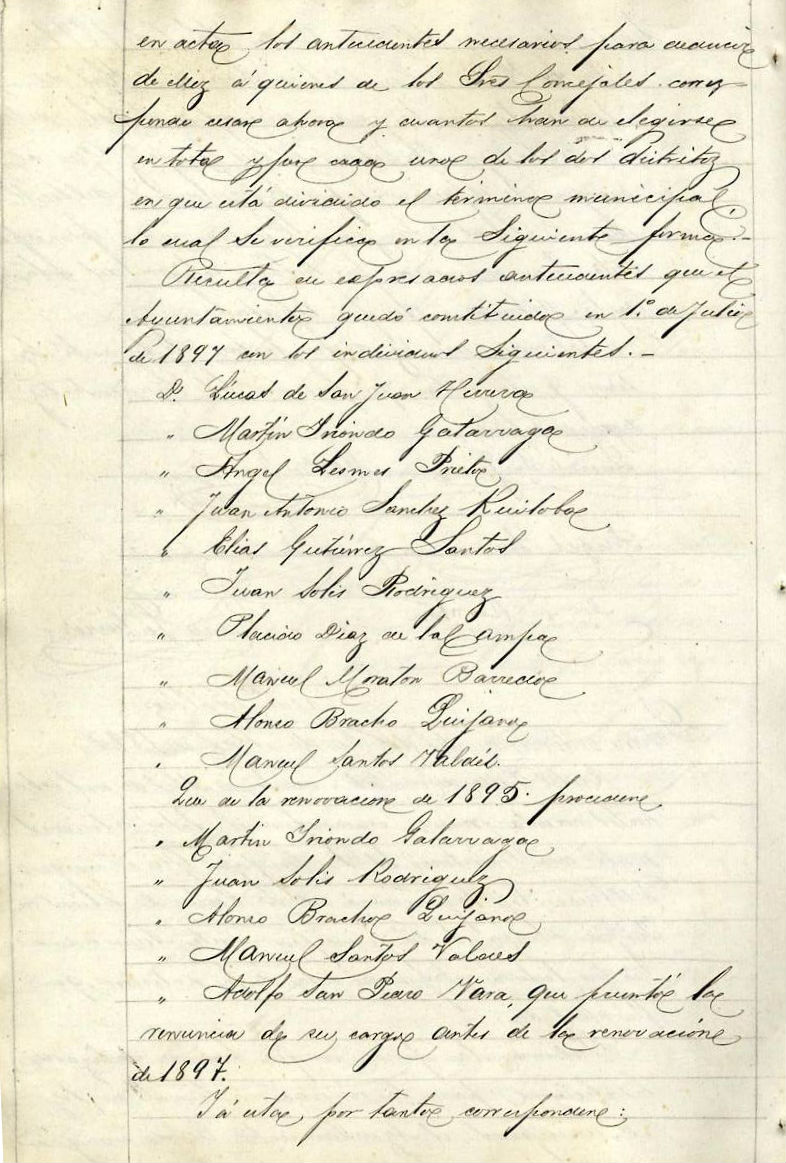 en acta los antecedentes necesarios para deducir
de ellos á quienes de los Sres Concejales corres-
ponde cesar ahora y cuantos han de elegirse
en total y por cada uno de los dos distritos
en que está dividido el termino municipal,
lo cual se verifica en la siguiente forma.-
Resulta de expresados antecedentes que el
Ayuntamiento quedó constituido en 1.º de Julio
de 1897 con los individuos siguientes.-
D. Lúcas de San Juan Herrera
" Martín Iriondo Galarraga
" Angel Lesmes Prieto
" Juan Antonio Sanchez Ruiloba
" Elias Gutiérrez Santos
" Juan Solis Rodriguez
" Placido Diaz de la Campa
" Manuel Moraton Barreda
" Alonso Bracho Quijano
" Manuel Santos Valdés.
Que de la renovacion de 1895. proceden
" Martin Iriondo Galarraga
" Juan Solis Rodriguez
" Alonso Bracho Quijano
" Manuel Santos Valdes
" Adolfo San Pedro Vara, que presentó la
renuncia de su cargo antes de la renovación
de 1897.
Y á esta, por tanto corresponden: